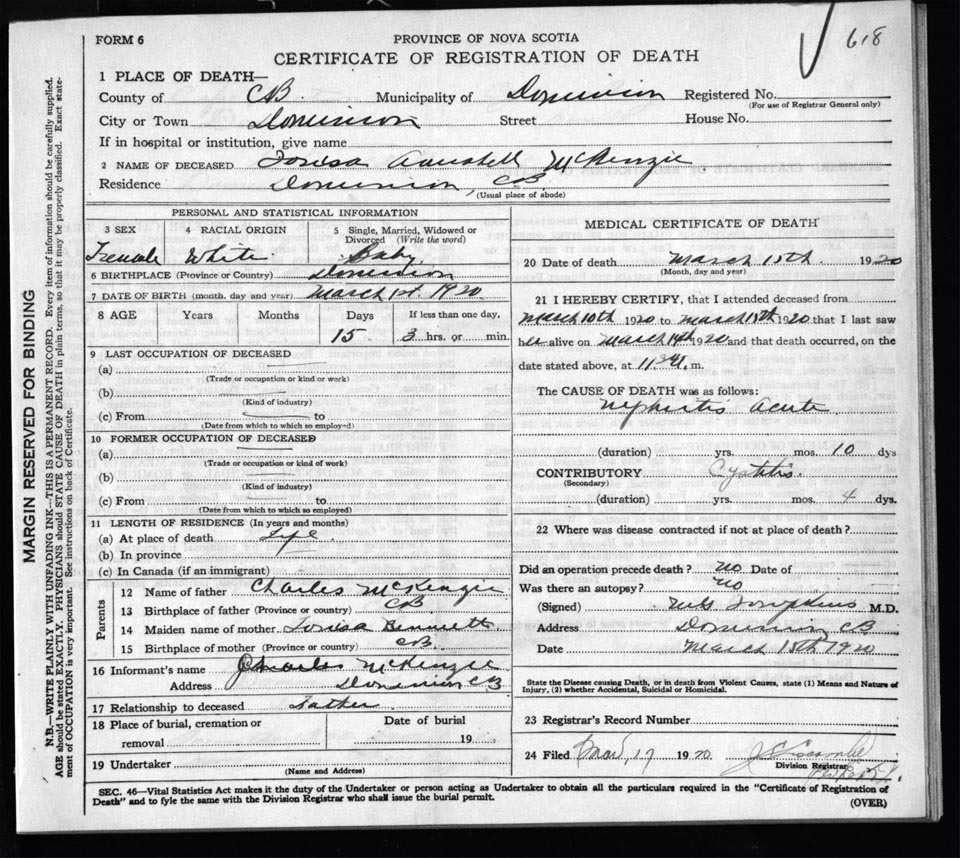 618
FORM 6
PROVINCE OF NOVA SCOTIA
CERTIFICATE OF REGISTRATION OF DEATH
1 PLACE OF DEATH—
County of CB. Municipality of Dominion Registered No.
(For use of Registrar General only)
City or Town Dominion Street House No.
If in hospital or institution, give name
2 NAME OF DECEASED McKenzie
Residence Dominion, CB.
(Usual place of abode)
PERSONAL AND STATISTICAL INFORMATION
3 SEX 4 RACIAL ORIGIN 5 Single, Married, Widowed or Divorced (Write the word)
Female White Baby
6 BIRTHPLACE (Province or Country) Dominion
7 DATE OF BIRTH (month, day and year) March 1st 1920
8 AGE Years Months Days If less than one day,
15 3 hrs. or min.
9 LAST OCCUPATION OF DECEASED
(a)
(Trade or occupation or kind or work)
(b)
(Kind of industry)
(c) From to
(Date from which to so employed)
10 FORMER OCCUPATION OF DECEASED
(a)
(Trade or occupation or kind of work)
(b)
(Kind of industry)
(c) From to
(Date from which to which so employed)
11 LENGTH OF RESIDENCE (In years and months)
(a) At place of death Life
(b) In province
(c) In Canada (if an immigrant)
Parents
12 Name of father Charles McKenzie
13 Birthplace of father (Province or country) CB
14 Maiden name of mother Bennett
15 Birthplace of mother (Province or country) CB.
16 Informant's name Charles McKenzie
Address Dominion CB
17 Relationship to deceased Father
18 Place of burial, cremation or removal Date of burial 19
19 Undertaker
(Name and Address)
MEDICAL CERTIFICATE OF DEATH
20 Date of death March 15th 1920
(Month, day and year)
21 I HEREBY CERTIFY, that I attended deceased from
March 10th 1920 to March 15th 1920 that I last saw
her alive on March 14th 1920 and that death occurred, on the
date stated above, at m.
The CAUSE OF DEATH was as follows:
Nephritis Acute
(duration) yrs. mos. 10 dys
CONTRIBUTORY Cystitis.
(Secondary)
(duration) yrs. mos. 4 dys.
22 Where was disease contracted if not at place of death?
Did an operation precede death? No Date of
Was there an autopsy? No
(Signed) M.D.
Address Dominion CB
Date March 15th 1920
State the Disease causing Death, or in death from Violent Causes, state (1) Means and Nature of
Injury, (2) whether Accidental, Suicidal or Homicidal.
23 Registrar's Record Number
24 Filed Mar 17 1920
Division Registrar
SEC. 46—Vital Statistics Act makes it the duty of the Undertaker or person acting as Undertaker to obtain all the particulars required in the "Certificate of Registration of
Death" and to fyle the same with the Division Registrar who shall issue the burial permit.
(OVER)
MARGIN RESERVED FOR BINDING
N.B.—WRITE PLAINLY WITH UNFADING INK—THIS IS A PERMANENT RECORD. Every item of information should be carefully supplied.
AGE should be stated EXACTLY. PHYSICIANS should STATE CAUSE OF DEATH in plain terms, so that it may be properly classified. Exact state-
ment of OCCUPATION is very important. See instructions on back of Certificate.